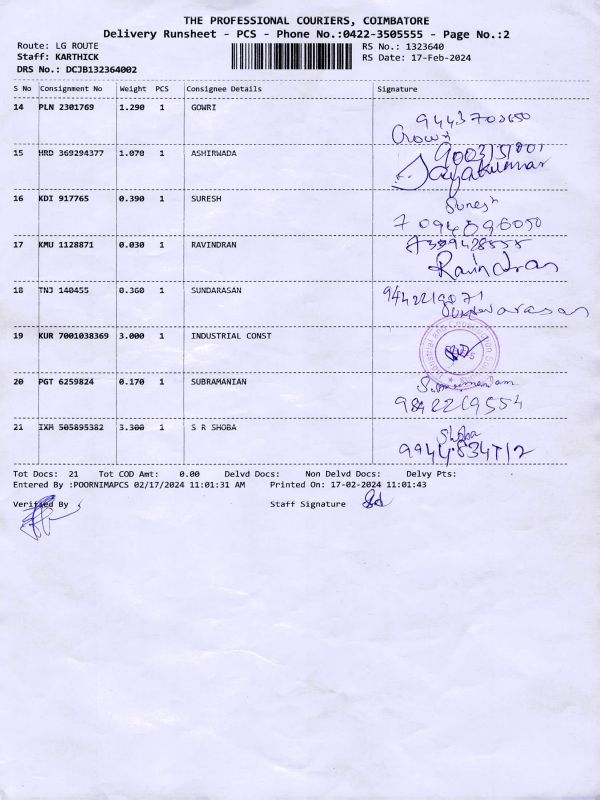 THE PROFESSIONAL COURIERS, COIMBATORE
Delivery Runsheet - PCS - Phone No.:0422-3505555 - Page No.:2
Route: LG ROUTE RS No.: 1323640
Staff: KARTHICK RS Date: 17-Feb-2024
DRS No.: DCJB132364002
S No Consignment No Weight PCS Consignee Details Signature
14 PLN 2301769 1.290 1 GOWRI
9443703650
Gowri
15 HRD 369294377 1.070 1 ASHIRWADA
Jayakumar
16 KDI 917765 0.390 1 SURESH
Suresh
7094596050
17 KMU 1128871 0.030 1 RAVINDRAN
Ravindran
18 TNJ 140455 0.360 1 SUNDARASAN
9442219071
19 KUR 7001038369 3.000 1 INDUSTRIAL CONST
20 PGT 6259824 0.170 1 SUBRAMANIAN
9842219554
21 IXM 505895382 3.300 1 S R SHOBA
Shoba
Tot Docs: 21 Tot COD Amt: 0.00 Delvd Docs: Non Delvd Docs: Delvy Pts:
Entered By :POORNIMAPCS 02/17/2024 11:01:31 AM Printed On: 17-02-2024 11:01:43
Verified By Staff Signature